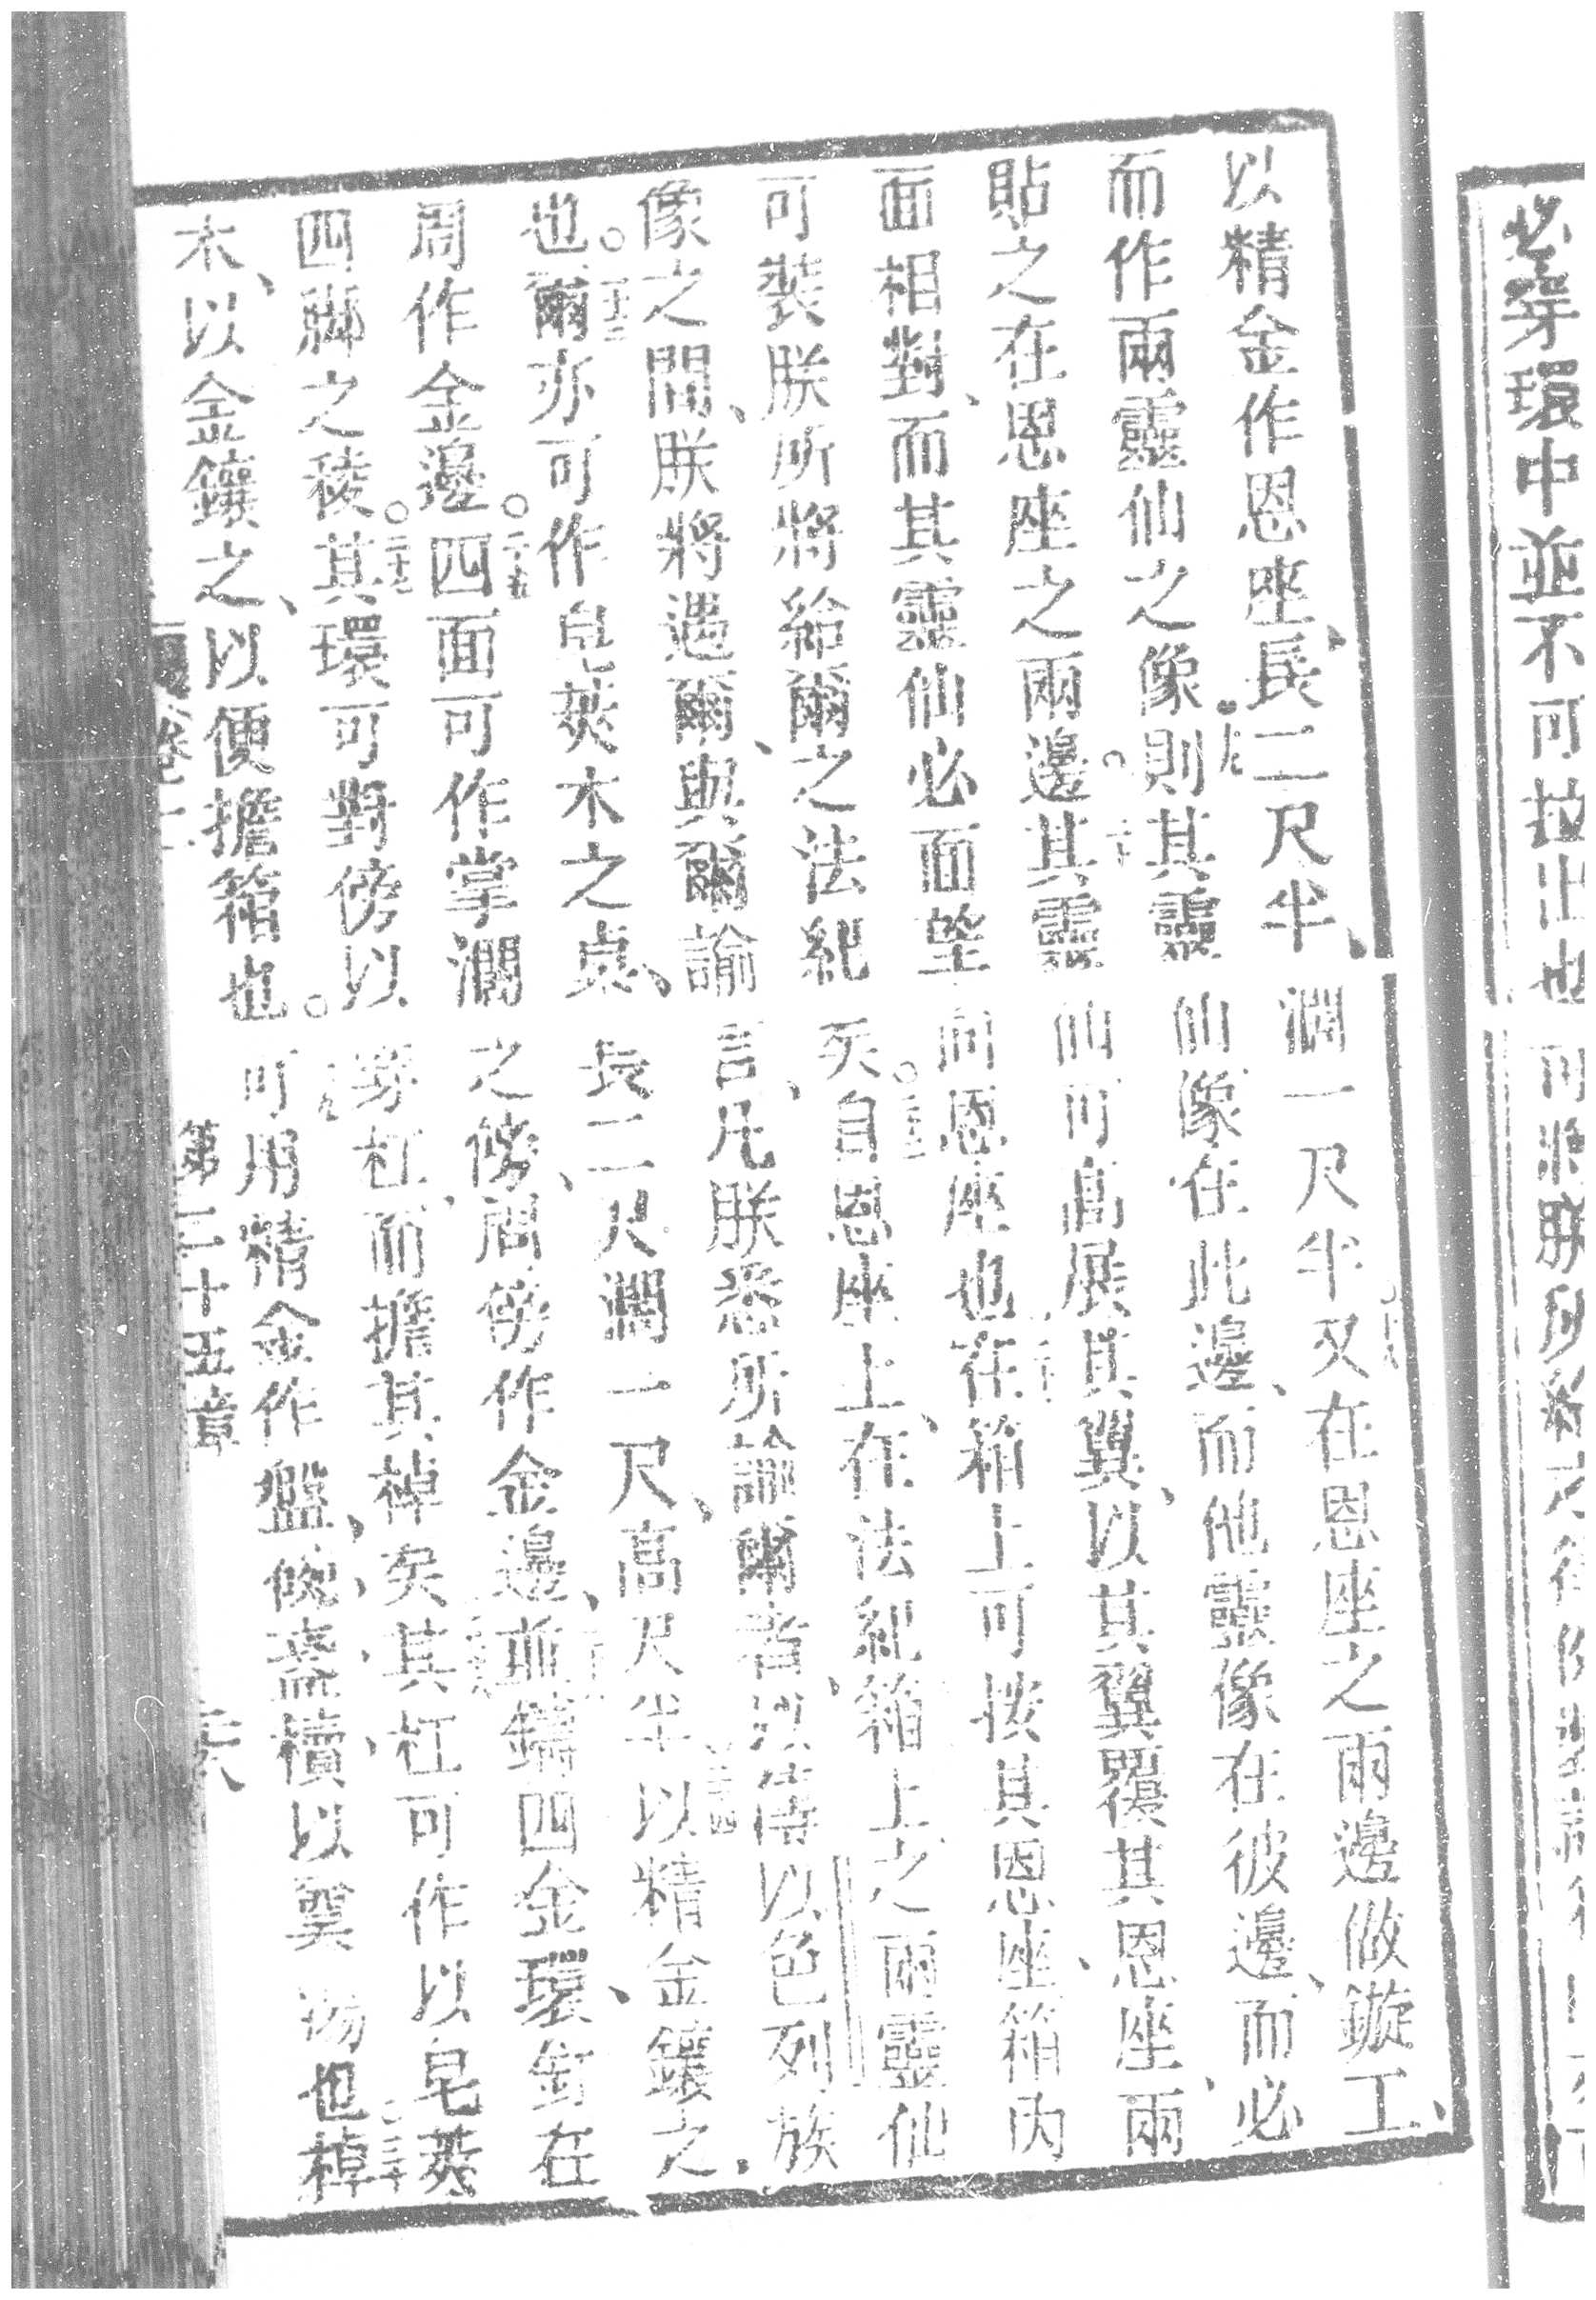 必穿環中並不可拉出也可將朕所給之
以精金作恩座、長二尺半、濶一尺半又在恩座之兩邊做鏇工、
而作兩靈仙之像則其靈仙像在此邊、而他靈像在彼邊、而必
貼之在恩座之兩邊。其靈仙可高展其翼、以其翼覆其恩座、兩
面相對、而其靈仙必面望向恩座也在箱上可按其恩座、箱內
可裝朕所將給爾之法紀矣。自恩座上、在法紀箱上之兩靈仙
像之間、朕將遇爾、與爾諭言、凡朕悉所諭爾者、以傳以色列族
也。爾亦可作皂莢木之桌、長二尺濶一尺、高尺半以精金鑲之.
周作金邊。四面可作掌濶之傍、周傍作金邊、並鑄四金環、釘在
四脚之稜。其環可對傍以穿杠、而擔其棹矣其杠可作以皂莢
木、以金鑲之、以便擔箱也。可用精金作盤、碗、盃、櫝、以奠湯也棹
第二十五章